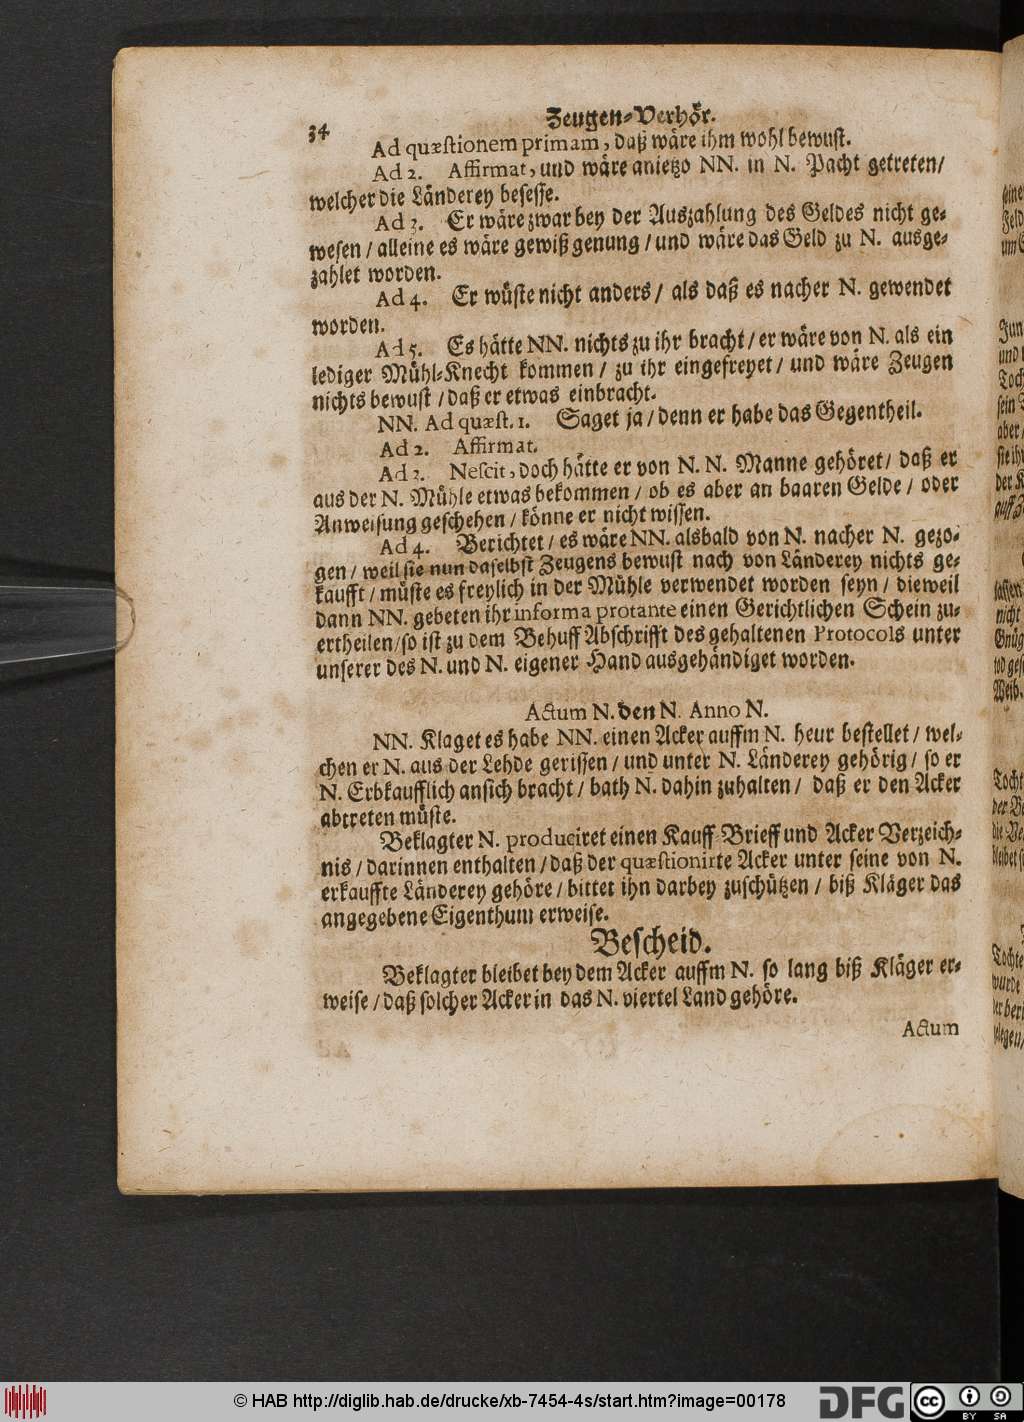 34
Zeugen-Verhör.
Ad quæstionem primam, daß wäre ihm wohl bewust.
Ad 2. Affirmat, und wäre anietzo NN. in N. Pacht getreten/
welcher die Länderey besesse.
Ad 3. Er wäre zwar bey der Auszahlung des Geldes nicht ge-
wesen / alleine es wäre gewiß genung / und wäre das Geld zu N. ausge-
zahlet worden.
Ad 4. Er wüste nicht anders / als daß es nacher N. gewendet
worden.
Ad 5. Es hätte NN. nichts zu ihr bracht / er wäre von N. als ein
lediger Mühl-Knecht kommen / zu ihr eingefreyet / und wäre Zeugen
nichts bewust / daß er etwas einbracht.
NN. Ad quæst. 1. Saget ja / denn er habe das Gegentheil.
Ad 2. Affirmat.
Ad 3. Nescit, doch hätte er von N. N. Manne gehöret / daß er
aus der N. Mühle etwas bekommen / ob es aber an baaren Gelde / oder
Anweisung geschehen / könne er nicht wissen.
Ad 4. Berichtet / es wäre NN. alsbald von N. nacher N. gezo-
gen / weil sie nun daselbst Zeugens bewust nach von Länderey nichts ge-
kaufft / müste es freylich in der Mühle verwendet worden seyn / dieweil
dann NN. gebeten ihr informa protante einen Gerichtlichen Schein zu-
ertheilen / so ist zu dem Behuff Abschrifft des gehaltenen Protocols unter
unserer des N. und N. eigener Hand ausgehändiget worden.
Actum N. den N. Anno N.
NN. Klaget es habe NN. einen Acker auffm N. heur bestellet / wel-
chen er N. aus der Lehde gerissen / und unter N. Länderey gehörig / so er
N. Erbkaufflich ansich bracht / bath N. dahin zuhalten / daß er den Acker
abtreten müste.
Beklagter N. produciret einen Kauff-Brieff und Acker Verzeich-
nis / darinnen enthalten / daß der quæstionirte Acker unter seine von N.
erkauffte Länderey gehöre / bittet ihn darbey zuschützen / biß Kläger das
angegebene Eigenthum erweise.
Bescheid.
Beklagter bleibet bey dem Acker auffm N. so lang biß Kläger er-
weise / daß solcher Acker in das N. viertel Land gehöre.
Actum
© HAB http://diglib.hab.de/drucke/xb-7454-4s/start.htm?image=00178
DFG
cc
BY SA